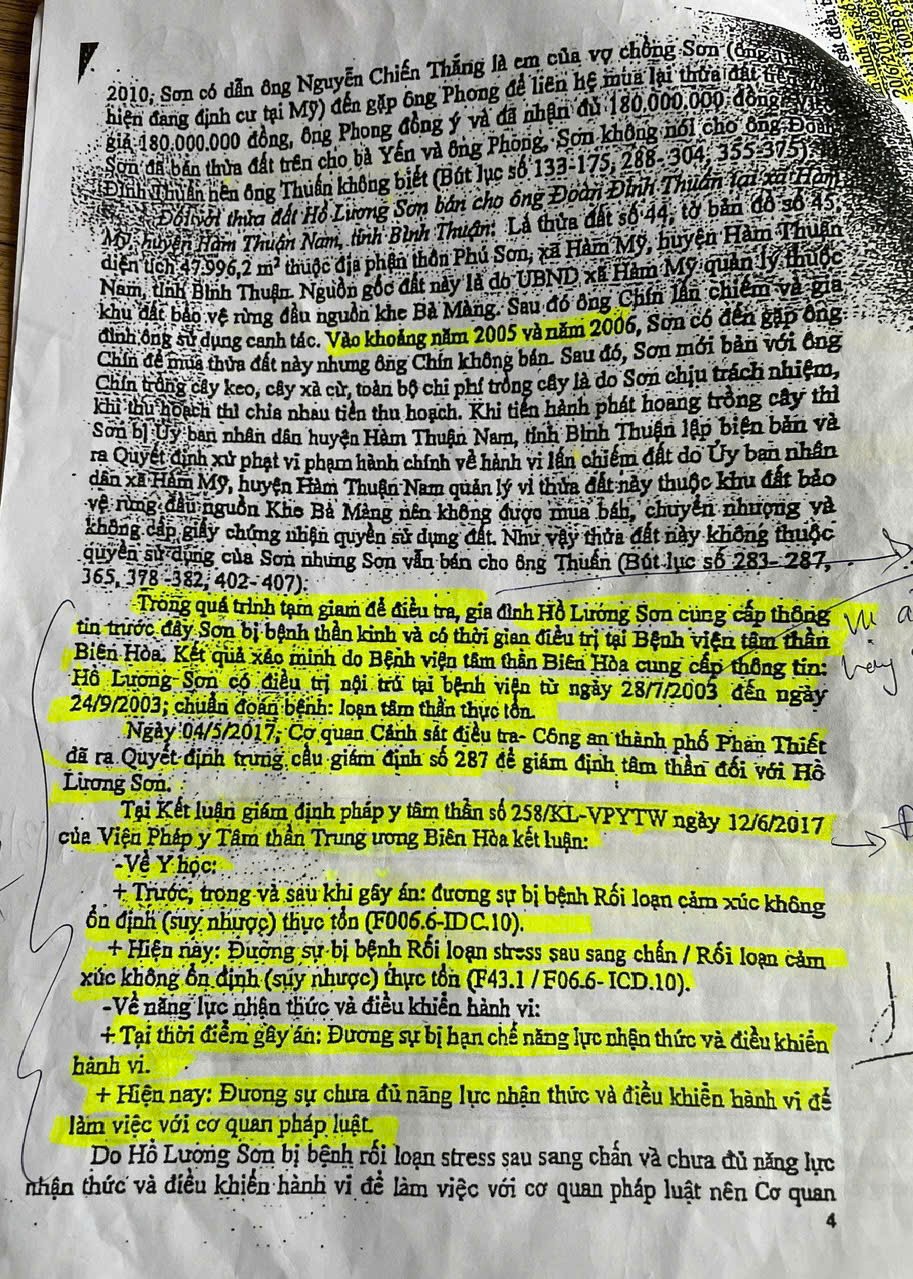 2010, Sơn có dẫn ông Nguyễn Chiến Thắng là em của vợ chồng Sơn (ông
hiện đang định cư tại Mỹ) đến gặp ông Phong để liên hệ mua lại thửa đất
giá 180.000.000 đồng, ông Phong đồng ý và đã nhận đủ 180.000.000 đồng.
Sơn đã bán thửa đất trên cho bà Yến và ông Phong, Sơn không nói cho ông Đoàn
Đình Thuấn nên ông Thuấn không biết (Bút lục số 133-175, 288-304, 355-375).
Đối với thửa đất Hồ Lương Sơn bán cho ông Đoàn Đình Thuấn tại xã Hàm
Mỹ, huyện Hàm Thuận Nam, tỉnh Bình Thuận: Là thửa đất số 44, tờ bản đồ số 45,
diện tích 47.996,2 m² thuộc địa phận thôn Phú Sơn, xã Hàm Mỹ, huyện Hàm Thuận
Nam, tỉnh Bình Thuận. Nguồn gốc đất này là do UBND xã Hàm Mỹ quản lý thuộc
khu đất bảo vệ rừng đầu nguồn khe Bà Màng. Sau đó ông Chín lấn chiếm và gia
đình ông sử dụng canh tác. Vào khoảng năm 2005 và năm 2006, Sơn có đến gặp ông
Chín để mua thửa đất này nhưng ông Chín không bán. Sau đó, Sơn mới bàn với ông
Chín trồng cây keo, cây xà cừ, toàn bộ chi phí trồng cây là do Sơn chịu trách nhiệm,
khi thu hoạch thì chia nhau tiền thu hoạch. Khi tiến hành phát hoang trồng cây thì
Sơn bị Ủy ban nhân dân huyện Hàm Thuận Nam, tỉnh Bình Thuận lập biên bản và
ra Quyết định xử phạt vi phạm hành chính về hành vi lấn chiếm đất do Ủy ban nhân
dân xã Hàm Mỹ, huyện Hàm Thuận Nam quản lý vì thửa đất này thuộc khu đất bảo
vệ rừng đầu nguồn Khe Bà Màng nên không được mua bán, chuyển nhượng và
không cấp giấy chứng nhận quyền sử dụng đất. Như vậy thửa đất này không thuộc
quyền sử dụng của Sơn nhưng Sơn vẫn bán cho ông Thuấn (Bút lục số 283- 287,
365, 378 -382, 402- 407).
Trong quá trình tạm giam để điều tra, gia đình Hồ Lương Sơn cung cấp thông
tin trước đây Sơn bị bệnh thần kinh và có thời gian điều trị tại Bệnh viện tâm thần
Biên Hòa. Kết quả xác minh do Bệnh viện tâm thần Biên Hòa cung cấp thông tin:
Hồ Lương Sơn có điều trị nội trú tại bệnh viện từ ngày 28/7/2003 đến ngày
24/9/2003; chuẩn đoán bệnh: loạn tâm thần thực tổn.
Ngày 04/5/2017, Cơ quan Cảnh sát điều tra- Công an thành phố Phan Thiết
đã ra Quyết định trưng cầu giám định số 287 để giám định tâm thần đối với Hồ
Lương Sơn.
Tại Kết luận giám định pháp y tâm thần số 258/KL-VPYTW ngày 12/6/2017
của Viện Pháp y Tâm thần Trung ương Biên Hòa kết luận:
-Về Y học:
+ Trước, trong và sau khi gây án: đương sự bị bệnh Rối loạn cảm xúc không
ổn định (suy nhược) thực tổn (F006.6-IDC.10).
+ Hiện nay: Đương sự bị bệnh Rối loạn stress sau sang chấn / Rối loạn cảm
xúc không ổn định (suy nhược) thực tổn (F43.1 / F06.6- ICD.10).
-Về năng lực nhận thức và điều khiển hành vi:
+ Tại thời điểm gây án: Đương sự bị hạn chế năng lực nhận thức và điều khiển
hành vi.
+ Hiện nay: Đương sự chưa đủ năng lực nhận thức và điều khiển hành vi để
làm việc với cơ quan pháp luật.
Do Hồ Lương Sơn bị bệnh rối loạn stress sau sang chấn và chưa đủ năng lực
nhận thức và điều khiển hành vi để làm việc với cơ quan pháp luật nên Cơ quan
4